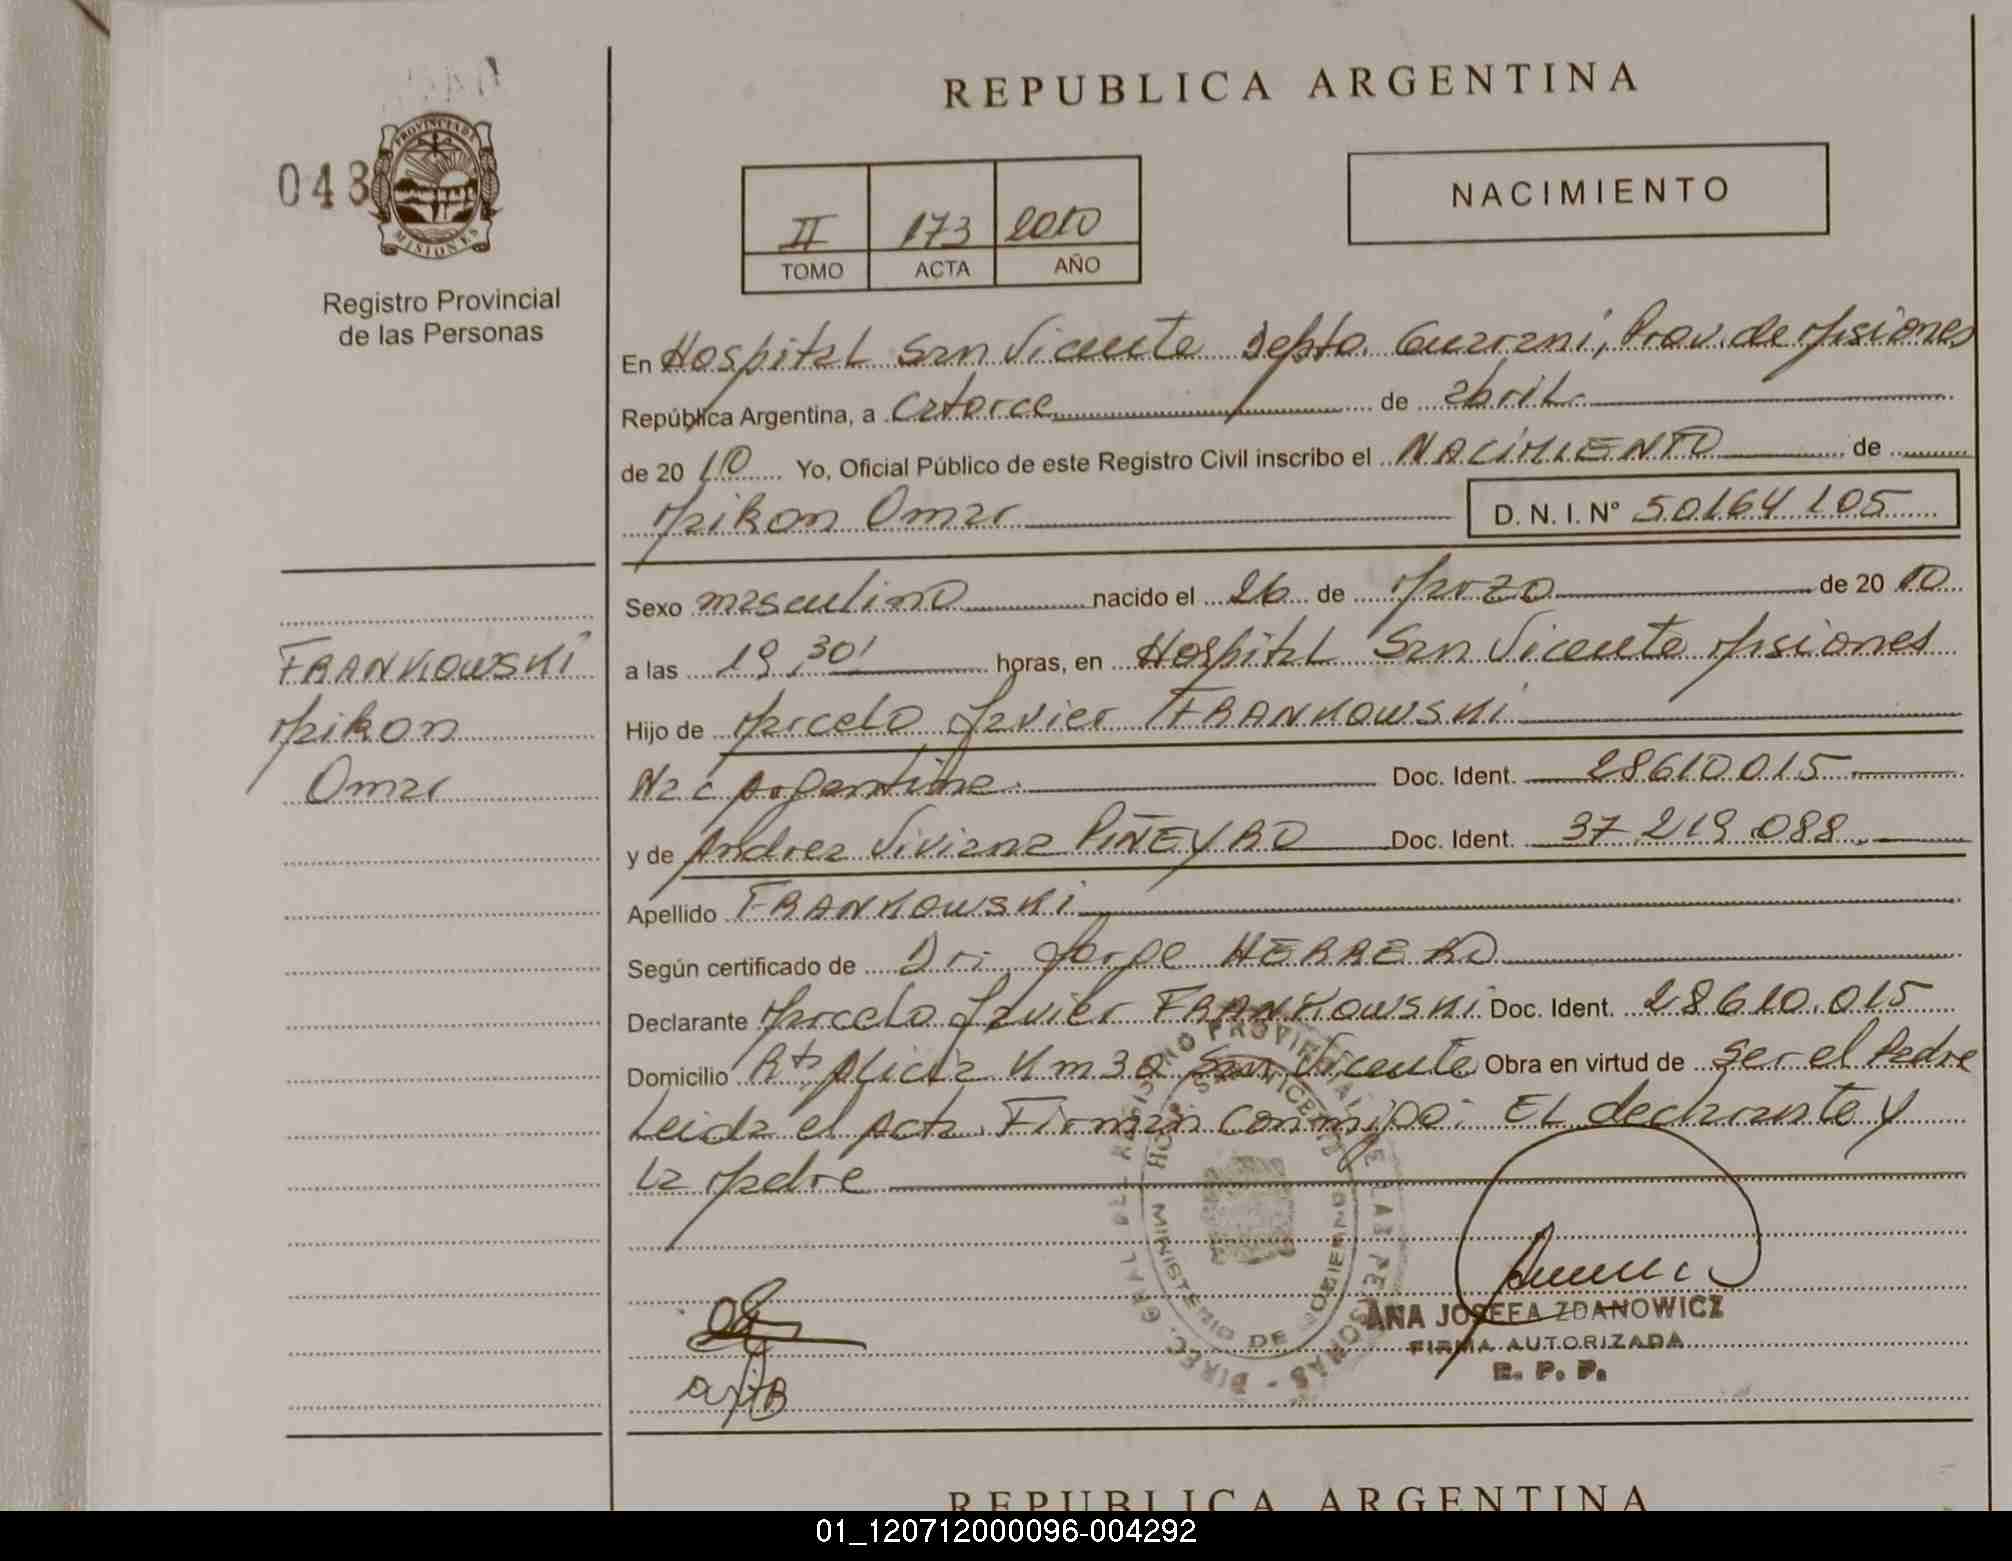 REPUBLICA ARGENTINA
048
PROVINCIA DE
MISIONES
Registro Provincial
de las Personas
NACIMIENTO
II 173 2010
TOMO ACTA AÑO
En Hospital San Vicente Depto. Guarani, Prov. de Misiones
República Argentina, a catorce de abril
de 2010 Yo, Oficial Público de este Registro Civil inscribo el NACIMIENTO de
Maikon Omar D. N. I. N° 50164105
Sexo masculino nacido el 26 de Marzo de 2010
a las 19,30' horas, en Hospital San Vicente Misiones
Hijo de Marcelo Javier FRANKOWSKI
Nac Argentina Doc. Ident. 28610015
y de Andrea Viviana PIÑEYRO Doc. Ident. 37.219.088
Apellido FRANKOWSKI
Según certificado de Dr. Jorge HERRERO
Declarante Marcelo Javier FRANKOWSKI Doc. Ident. 28610.015
Domicilio Rta Alicia Km 30 San Vicente Obra en virtud de ser el Padre
Leida el Acta Firman conmigo: El declarante y
la Madre
FRANKOWSKI
Maikon
Omar
MINISTERIO DE GOBIERNO
ANA JOSEFA ZDANOWICZ
FIRMA AUTORIZADA
R. P. P.
REPUBLICA ARGENTINA
01_120712000096-004292